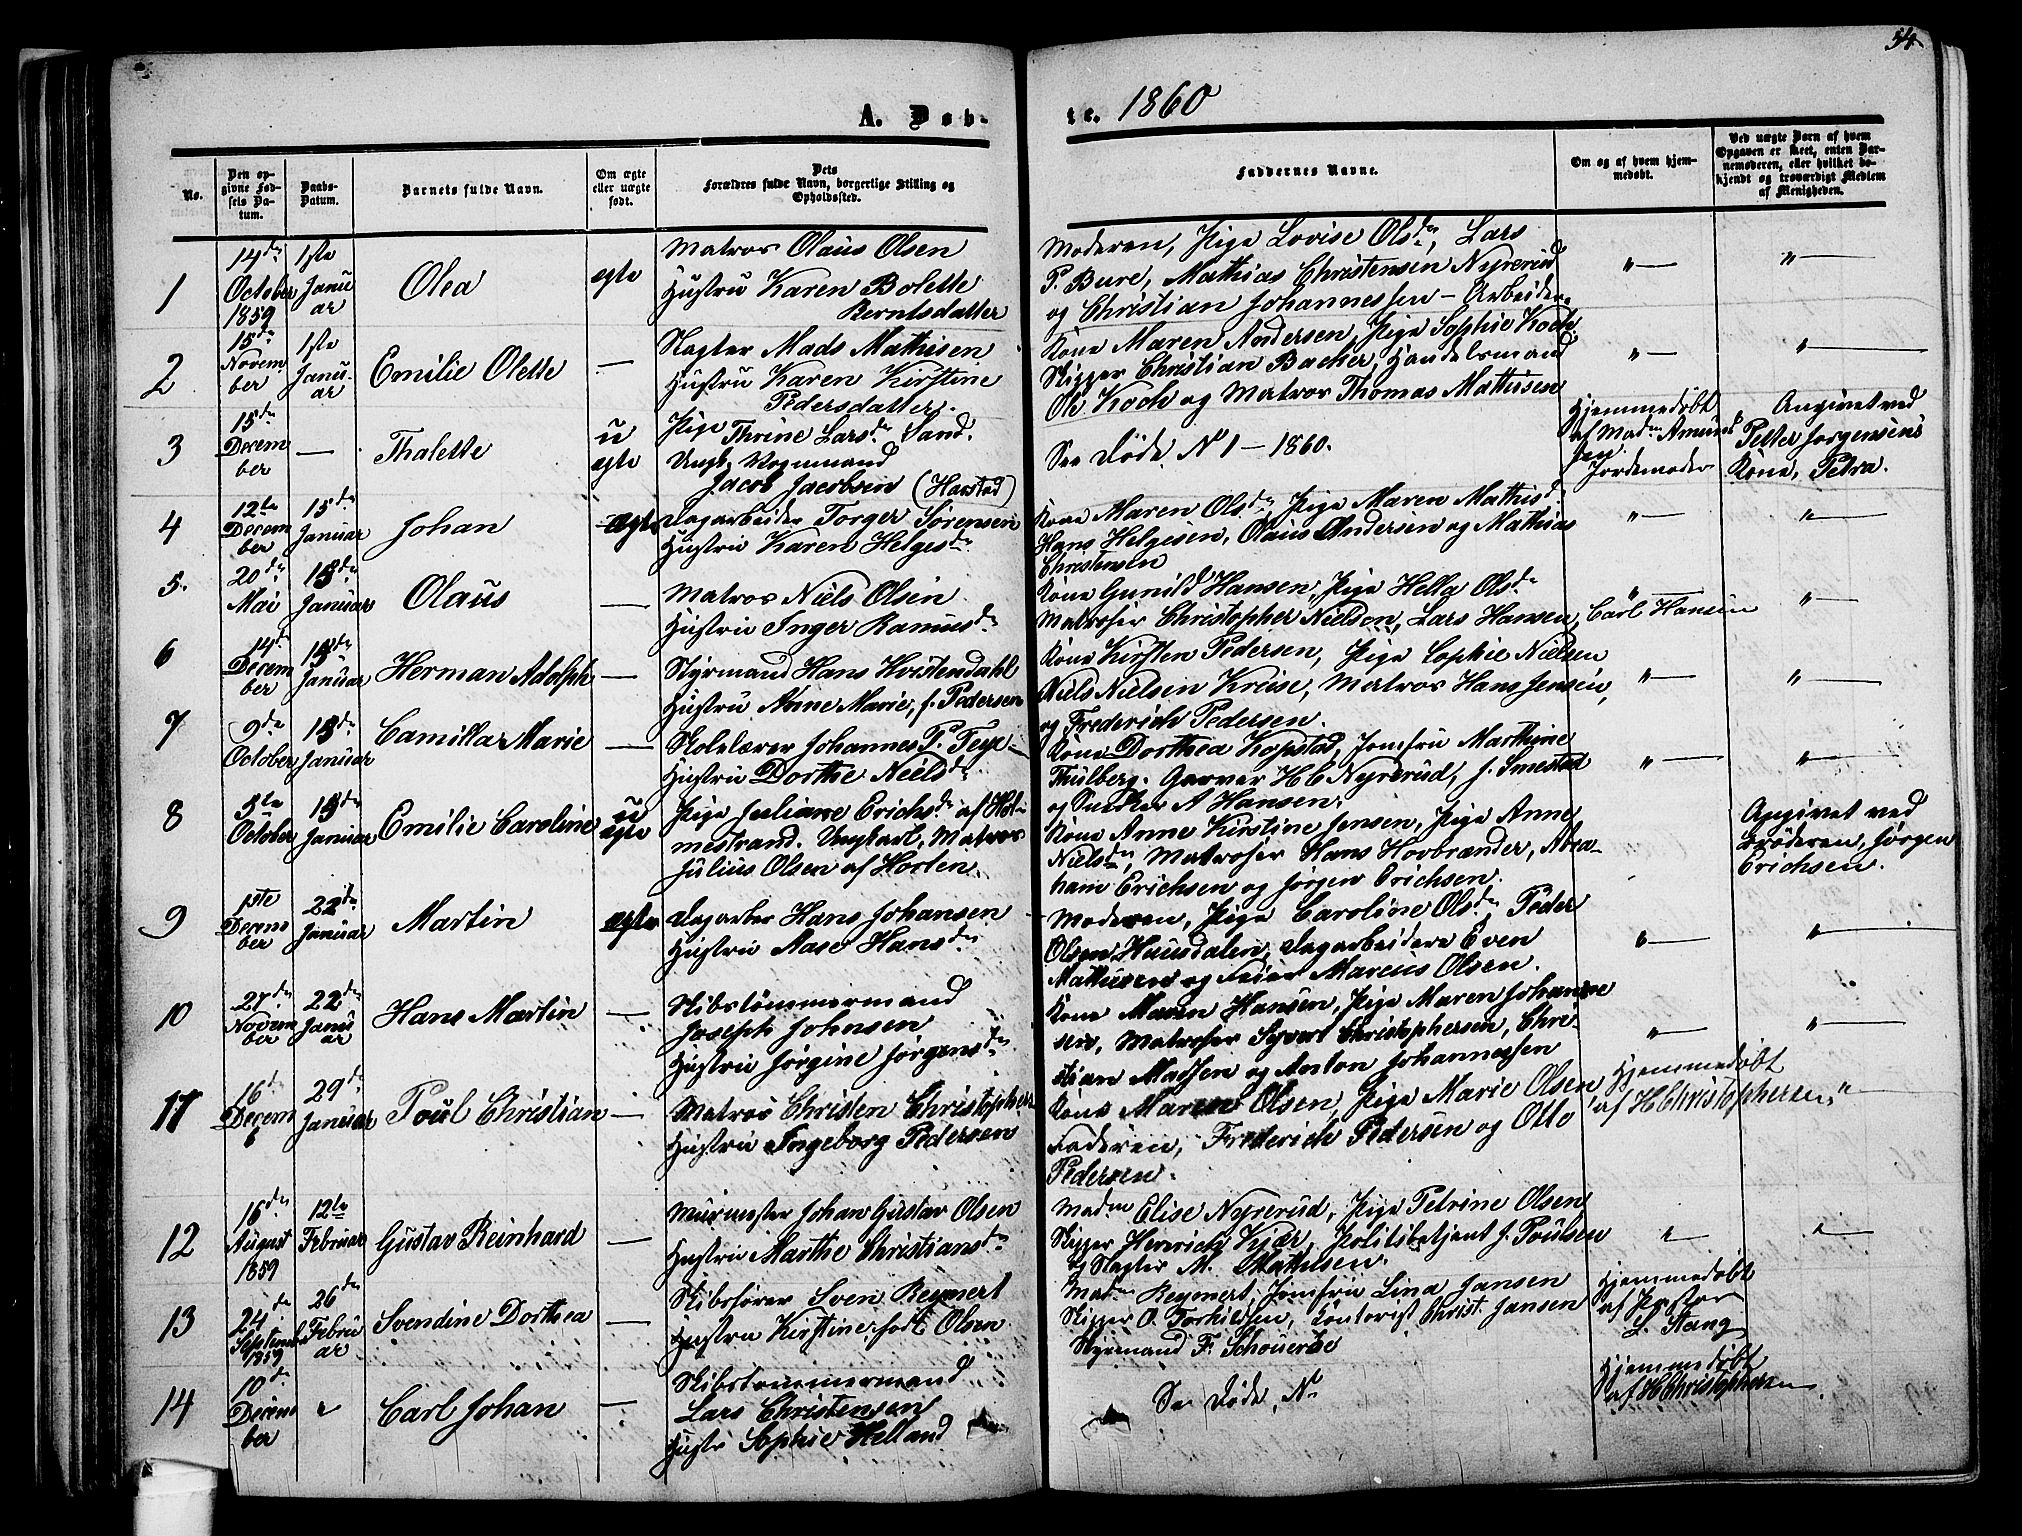 54
A. Døb-
te. 1860
No.
Den op-
givne Fød-
sels Da-
tum.
Daabs-
Datum.
Barnets fulde Navn.
Om ægte
eller uægte
født.
Dets
Forældres fulde Navn, borgerlige Stilling og
Opholdssted.
Faddernes Navne.
Om og af hvem hjem-
medøbt.
Ved uægte Barn af hvem
Opgaven er skeet, enten Bar-
nemoderen, eller hvilket be-
kjendt og troværdigt Medlem
af Menigheden.
1
14de
October
1859
1ste
Janu
ar
Olea
ægte
Matros Olaus Olsen
Hustru Karen Bolette
Berntsdatter
Moderen, Pige Lovise Olsdn, Lars
P. Bure, Mathias Christensen Nyrerud
og Christian Johannessen - Arbeidere
" —
" —
2
15de
Novem
ber
1ste
Janu
ar
Emilie Olette
—
Slagter Mads Mathisen
Hustru Karen Kirstine
Pedersdatter.
Kone Maren Andersen, Pige Sophie Koch
Skipper Christian Backer, Handelsmand
Ole Koch og Matros Thomas Mathisen
" —
" —
3
15de
Decem
ber
—
Thalette
u
ægte
Pige Thrine Larsdn Sand.
Ungk. Vognmand
Jacob Jacobsen (Harstad)
See Døde No 1 - 1860.
Hjemmedøbt
af Madm Amund
sen
Jordemoder
Angivet ved
Petter Jørgensens
Kone, Petra.
4
12te
Decem
ber
15de
Januar
Johan
ægte
Dagarbeider Torger Sørensen
Hustru Karen Helgesdn
Kone Maren Olsdn, Pige Maren Mathisd
Hans Helgesen, Olaus Andersen og Mathias
Christensen
" —
" —
5.
20de
Mai
15de
Januar
Olaus
—
Matros Niels Olsen
Hustru Inger Rasmusdn
Kone Gunild Hansen, Pige Hella Olsdn
Matroser Christopher Nielsen, Lars Hansen, Carl Hansen
" —
" —
6
14de
Decem
ber
15de
Januar
Herman Adolph
—
Styrmand Hans Kvistendahl
Hustru Anne Marie, f. Pedersen
Kone Kirsten Pedersen, Pige Sophie Nielsen
Niels Nielsen Kruse, Matros Hans Jensen,
og Frederich Pedersen.
" —
" —
7
9de
October
15de
Januar
Camilla Marie
—
Skolelærer Johannes P. Teye
Hustru Dorthe Nielsdn
Kone Dorthea Kopstad, Jomfru Marthine
Thulberg. Garver H C Nyrerud, J. Smestad
og Snedker A Hansen.
" —
" —
8
5te
October
15de
Januar
Emilie Caroline
u
ægte
Pige Juliane Erichsdn af Hol-
mestrand. Ungkarl, Matros
Julius Olsen af Horten.
Kone Anne Kirstine Jensen, Pige Anne
Nielsdn, Matroser Hans Hovbrænder, Abra-
ham Erichsen og Jørgen Erichsen.
Angivet ved
Broderen, Jørgen
Erichsen.
9
1ste
Decem
ber
22de
Januar
Martin
ægte
Dagarber Hans Johansen
Hustru Aase Hansdn
Moderen, Pige Caroline Olsdn, Peder
Olsen Huusdalen, Dagarbeidere Even
Mathisen og Feier Marcus Olsen.
" —
" —
10
27de
Novem
ber
22de
Janu
ar
Hans Martin
—
Skibstømmermand
Joseph Johnsen
Hustru Jørgine Jørgensdn
Kone Maren Hansen, Pige Maren Johanne
sen, Matroser Syvert Christophersen, Chri-
stian Madsen og Anton Johannesen
" —
" —
11
16d
Decem
b
29de
Januar
Poul Christian
—
Matros Christen Christophers
Hustru Ingeborg Pedersen
Kone Maren Olsen, Pige Marie Olsen
Faderen, Frederich Pedersen og Otto
Pedersen.
Hjemmedøbt
af H Christophersen
" —
12
16de
August
1859
12te
Februar
Gustav Reinhard
—
Murmester Johan Gustav Olsen
Hustru Marthe Christiansdn
Madm Elise Nyrerud, Pige Petrine Olsen
Skipper Henrich Kjær, Politibetjent J. Poulsen
og Slagter M. Mathisen.
"
"
13
24de
September
1859
26de
Febru
ar
Svendine Dorthea
—
Skibsfører Sven Reymert
Hustru Kirstine født Olsen
Madm Reymert, Jomfru Lina Jansen
Skipper O. Torkildsen, Contorist Christ. Jansen
Styrmand F. Schouerøe
Hjemmedøbt
af Pastor
L. Stang
14
10de
Decem
ber
"
Carl Johan
—
Skibstømmermand
Lars Christensen
Hustr Sophie Helland
See Døde, No
Hjemmedøbt
af H Christophersen.